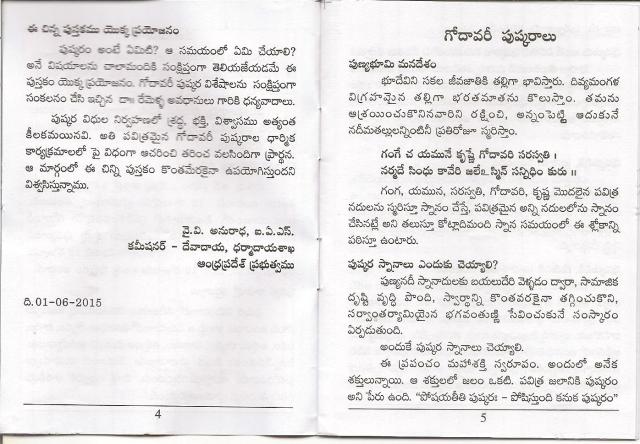 ఈ చిన్న పుస్తకము యొక్క ప్రయోజనం
పుష్కరం అంటే ఏమిటి? ఆ సమయంలో ఏమి చేయాలి?
అనే విషయాలను చాలామందికి సంక్షిప్తంగా తెలియజేయడమే ఈ
పుస్తకం యొక్క ప్రయోజనం. గోదావరీ పుష్కర విశేషాలను సంక్షిప్తంగా
సంకలనం చేసి ఇచ్చిన డా॥ రేమెళ్ళ అవధానులు గారికి ధన్యవాదాలు.
పుష్కర విధుల నిర్వహణలో శ్రద్ధ, భక్తి, విశ్వాసము అత్యంత
కీలకమయినవి. అతి పవిత్రమైన గోదావరీ పుష్కరాల ధార్మిక
కార్యక్రమాలలో పై విధంగా ఆచరించి తరించ వలసిందిగా ప్రార్థన.
ఆ మార్గంలో ఈ చిన్ని పుస్తకం కొంతమేరకైనా ఉపయోగిస్తుందని
విశ్వసిస్తున్నాము.
వై.వి. అనురాధ, ఐ.ఏ.ఎస్.
కమీషనర్ – దేవాదాయ, ధర్మాదాయశాఖ
ఆంధ్రప్రదేశ్ ప్రభుత్వము
ది.01-06-2015
4
గోదావరీ పుష్కరాలు
పుణ్యభూమి మనదేశం
భూదేవిని సకల జీవజాతికి తల్లిగా భావిస్తారు. దివ్యమంగళ
విగ్రహమైన తల్లిగా భరతమాతను కొలుస్తాం. తమను
ఆశ్రయించుకొనినవారిని రక్షించి, అన్నంపెట్టి ఆదుకునే
నదీమతల్లులన్నింటినీ ప్రతిరోజూ స్మరిస్తాం.
గంగే చ యమునే కృష్ణే గోదావరి సరస్వతి ।
నర్మదే సింధు కావేరి జలేఽస్మిన్ సన్నిధిం కురు ॥
గంగ, యమున, సరస్వతి, గోదావరి, కృష్ణ మొదలైన పవిత్ర
నదులను స్మరిస్తూ స్నానం చేస్తే, పవిత్రమైన అన్ని నదులలోను స్నానం
చేసినట్లే అని తలుస్తూ కోట్లాదిమంది స్నాన సమయంలో ఈ శ్లోకాన్ని
పఠిస్తూ ఉంటారు.
పుష్కర స్నానాలు ఎందుకు చెయ్యాలి?
పుణ్యనదీ స్నానాదులకు బయలుదేరి వెళ్లడం ద్వారా, సామాజిక
దృష్టి వృద్ధి పొంది, స్వార్థాన్ని కొంతవరకైనా తగ్గించుకొని,
సర్వాంతర్యామియైన భగవంతుణ్ణి సేవించుకునే సంస్కారం
ఏర్పడుతుంది.
అందుకే పుష్కర స్నానాలు చెయ్యాలి.
ఈ ప్రపంచం మహాశక్తి స్వరూపం. అందులో అనేక
శక్తులున్నాయి. ఆ శక్తులలో జలం ఒకటి. పవిత్ర జలానికి పుష్కరం
అని పేరు ఉంది. “పోషయతీతి పుష్కరః – పోషిస్తుంది కనుక పుష్కరం”
5